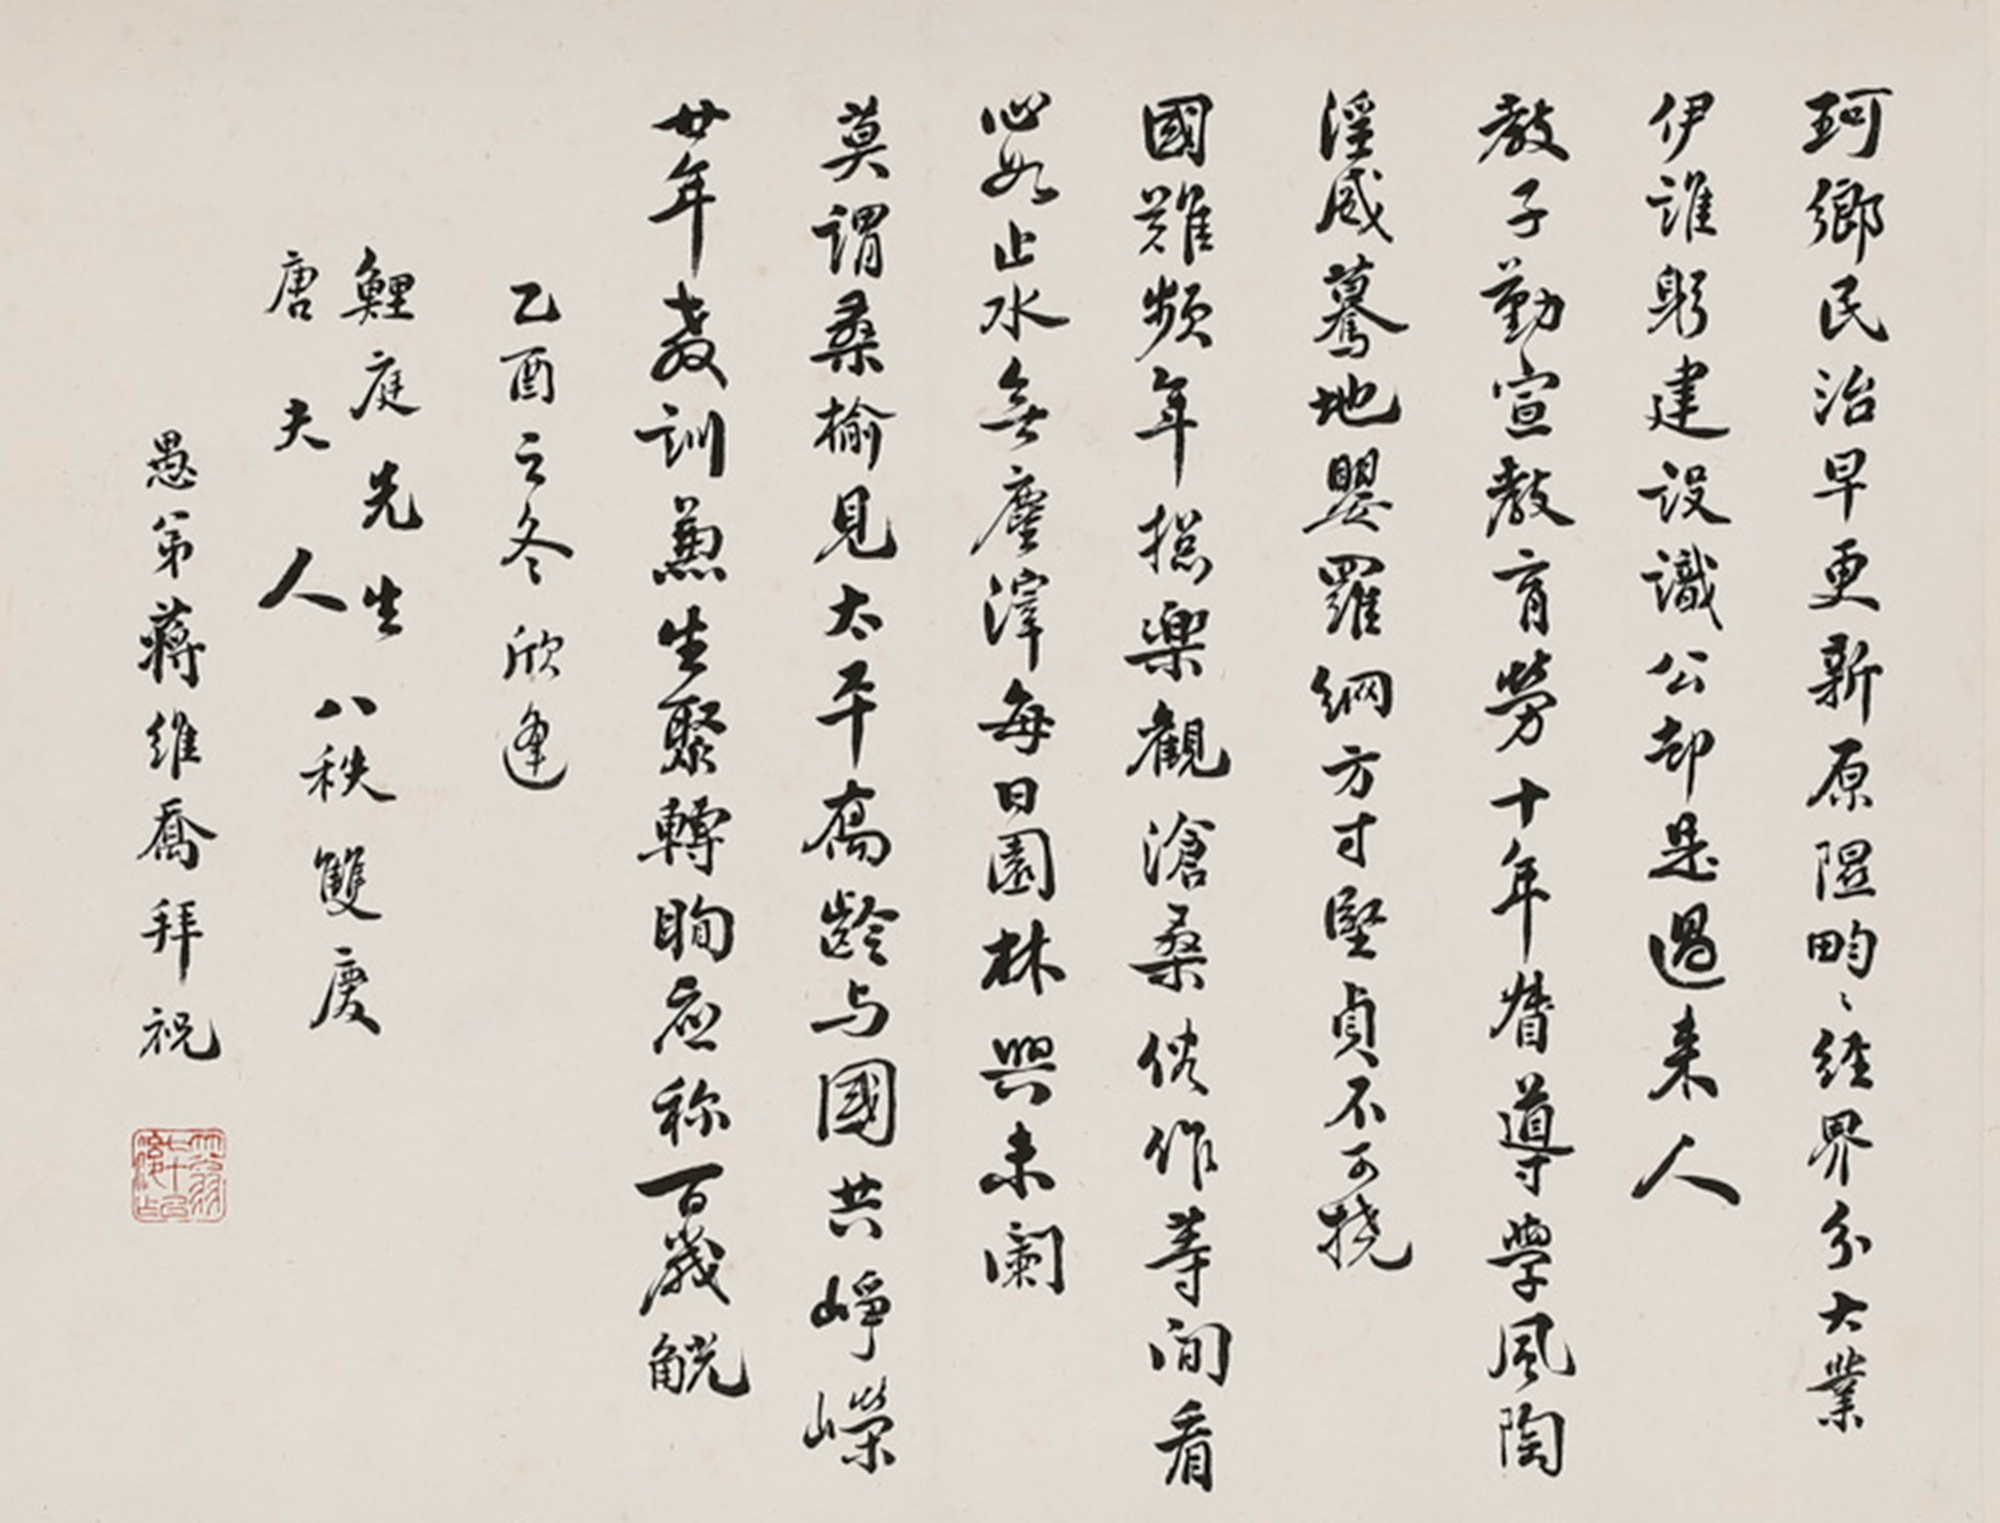 珂鄉民治早更新原隰畇〻經界分大業
伊誰躬建設識公却是過来人
教子勤宣教育勞十年督導學風陶
淫威驀地嬰羅網方寸堅貞不可撓
國難頻年摠樂觀滄桑俗作等閒看
心如止水無塵滓每日園林興未闌
莫謂桑榆見太平喬齡与國共崢嶸
廿年教訓兼生聚轉眴應称百歲觥
乙酉之冬欣逢
鯉庭先生
唐夫人
八秩雙慶
愚弟蔣維喬拜祝